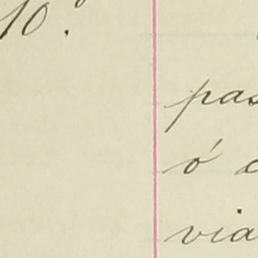 10.º
pas
ó
via